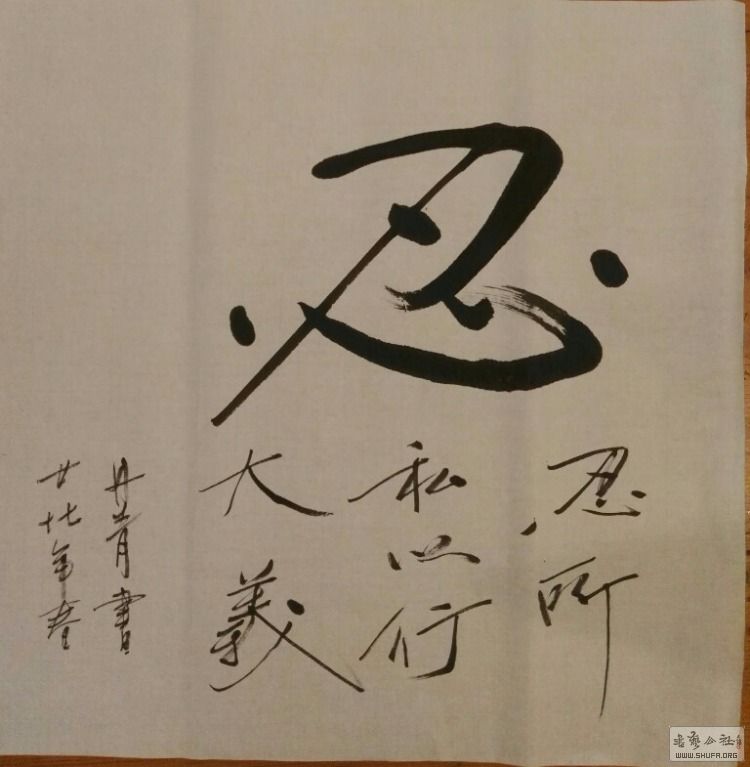 忍
忍所
私以行
大義
丹青書
廿十七年春
書藝公社
WWW.SHUFA.ORG